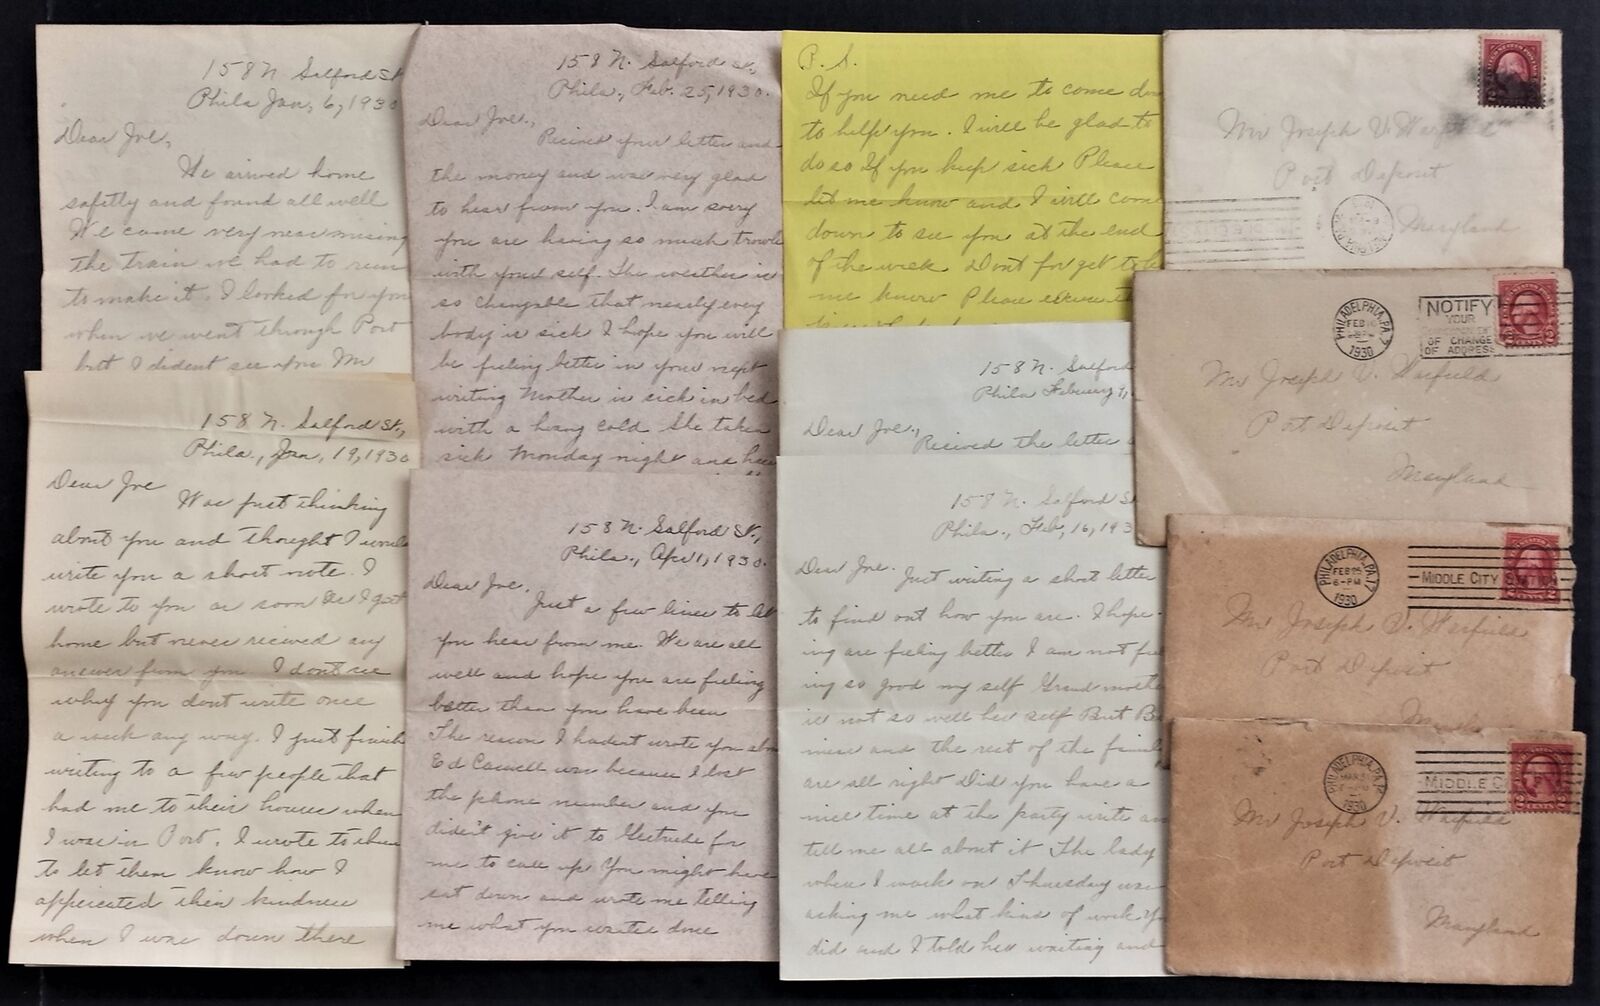 158 N. Salford St.
Phila Jan, 6, 1930
Dear Joe,
We arrived home
safetly and found all well
We came very near missing
the train we had to run
to make it. I looked for you
when we went through Port
but I dident see you Mr
158 N. Salford St.,
Phila., Jan, 19, 1930
Dear Joe
Was just thinking
about you and thought I would
write you a short note. I
wrote to you as soon as I got
home but never recived any
answer from you I dont see
why you dont write once
a week any way. I just finish
writing to a few people that
had me to their houses when
I was in Port. I wrote to them
to let them know how I
appricated their kindness
when I was down there
158 N. Salford St.,
Phila., Feb. 25, 1930.
Dear Joe.,
Recived your letter and
the money and was very glad
to hear from you. I am sorry
you are having so much trouble
with your self. The weather is
so changable that nearly every
body is sick I hope you will
be feeling better in your next
writing Mother is sick in bed
with a heavy cold She taken
sick Monday night and has
158 N. Salford St.,
Phila., Apr. 1, 1930.
Dear Joe,
Just a few lines to let
you hear from me. We are all
well and hope you are feeling
better than you have been
The reason I hadent wrote you about
Ed Caswell was because I lost
the phone number and you
diden't give it to Gertrude for
me to call up You might have
sat down and wrote me telling
me what you wanted done
P. S.
If you need me to come down
to help you. I will be glad to
do so If you keep sick Please
let me know and I will come
down to see you at the end
of the week Dont forget to let
me know Please excuse
158 N. Salford
Phila February 1,
Dear Joe.,
Recived the letter
158 N. Salford St
Phila., Feb, 16, 193
Dear Joe.
Just writing a short letter
to find out how you are. I hope
ing are feeling better I am not feel
ing so good my self Grand mother
is not so well her self But
and the rest of the family
are all right Did you have a
nice time at the party write and
tell me all about it The lady
where I work on Thursday was
asking me what kind of work you
did and I told her waiting and
Mr Joseph V. Warfield
Port Deposit
Maryland
PHILADELPHIA, PA.
FEB
1930
NOTIFY
YOUR
OF CHANGE
OF ADDRESS
Mr Joseph V. Warfield
Port Deposit
Maryland
PHILADELPHIA, PA.
FEB 25
6-PM
1930
MIDDLE CITY STATION
Mr Joseph V. Warfield
Port Deposit
PHILADELPHIA, PA.
MAR 31
1930
MIDDLE C
2 CENTS 2
Mr Joseph V. Warfield
Port Deposit
Maryland